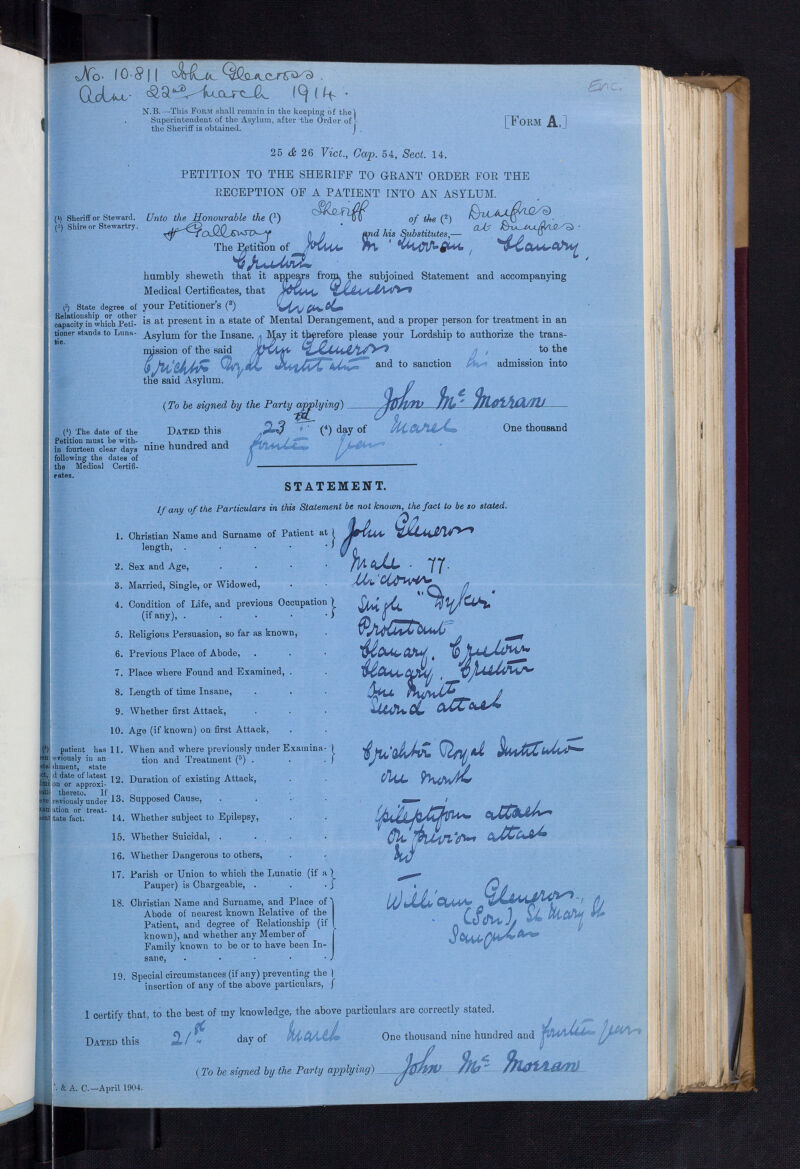 No. 10.811 John Glencross.
Adm. 22nd March 1914.
Enc.
N.B.—This Form shall remain in the keeping of the
Superintendent of the Asylum, after the Order of
the Sheriff is obtained.
[Form A.]
25 & 26 Vict., Cap. 54, Sect. 14.
PETITION TO THE SHERIFF TO GRANT ORDER FOR THE
RECEPTION OF A PATIENT INTO AN ASYLUM.
(1) Sheriff or Steward.
(2) Shire or Stewartry.
Unto the Honourable the (1) Sheriff of the (2) Dumfries
& Galloway and his Substitutes,— at Dumfries.
The Petition of John Mc Morran, Glanary,
Creetown
humbly sheweth that it appears from the subjoined Statement and accompanying
Medical Certificates, that John Glencross
(3) State degree of
Relationship or other
capacity in which Peti-
tioner stands to Luna-
tic.
your Petitioner's (3) Ward
is at present in a state of Mental Derangement, and a proper person for treatment in an
Asylum for the Insane. May it therefore please your Lordship to authorize the trans-
mission of the said John Glencross to the
Crichton Royal Institution and to sanction his admission into
the said Asylum.
(To be signed by the Party applying) John Mc. Morran
(4) The date of the
Petition must be with-
in fourteen clear days
following the dates of
the Medical Certifi-
cates.
Dated this 23rd (4) day of March One thousand
nine hundred and fourteen years
STATEMENT.
If any of the Particulars in this Statement be not known, the fact to be so stated.
1. Christian Name and Surname of Patient at
length, . . . . . John Glencross
2. Sex and Age, . . . . Male. 77.
3. Married, Single, or Widowed, . . Widower
4. Condition of Life, and previous Occupation
(if any), . . . . . Single "Dyker"
5. Religious Persuasion, so far as known, . Protestant
6. Previous Place of Abode, . . . Glanary. Creetown
7. Place where Found and Examined, . . Glanary. Creetown
8. Length of time Insane, . . . One Month
9. Whether first Attack, . . . Second attack
10. Age (if known) on first Attack, . .
(5) patient has
previously in an
shment, state
d date of latest
on or approxi-
thereto. If
previously under
ation or treat-
state fact.
11. When and where previously under Examina-
tion and Treatment (5) . . . Crichton Royal Institution
12. Duration of existing Attack, . . One Month
13. Supposed Cause, . . . .
14. Whether subject to Epilepsy, . . Epileptiform attacks
15. Whether Suicidal, . . . . On previous attack
16. Whether Dangerous to others, . . No
17. Parish or Union to which the Lunatic (if a
Pauper) is Chargeable, . . . —
18. Christian Name and Surname, and Place of
Abode of nearest known Relative of the
Patient, and degree of Relationship (if
known), and whether any Member of
Family known to be or to have been In-
sane, . . . . .
William Glencross,
(Son), St Mary St
Sanquhar
19. Special circumstances (if any) preventing the
insertion of any of the above particulars,
I certify that, to the best of my knowledge, the above particulars are correctly stated.
Dated this 21st day of March One thousand nine hundred and fourteen years
(To be signed by the Party applying) John Mc. Morran
. & A. C.—April 1904.